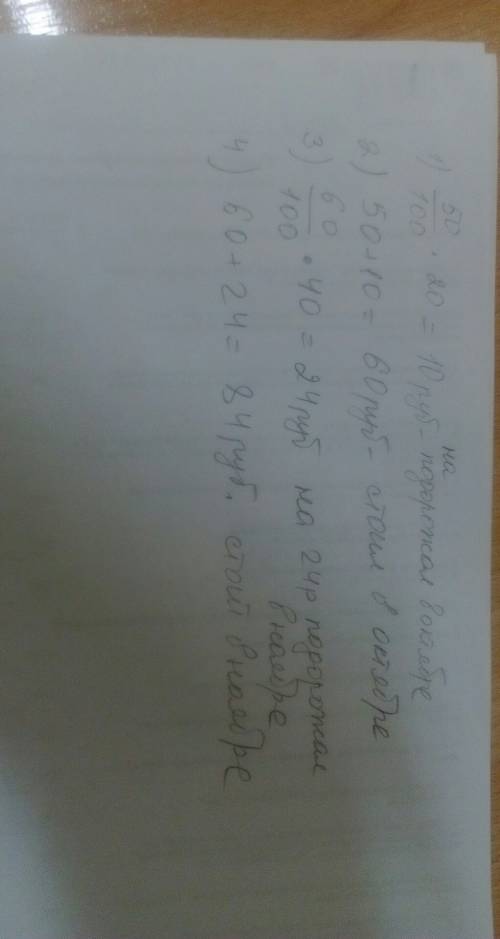 1) 50/100 · 20 = 10 руб - на подорожал в октябре
2) 50+10 = 60 руб - стоил в октябре
3) 60/100 · 40 = 24 руб на 24р подорожал
в ноябре
4) 60 + 24 = 84 руб. стоит в ноябре